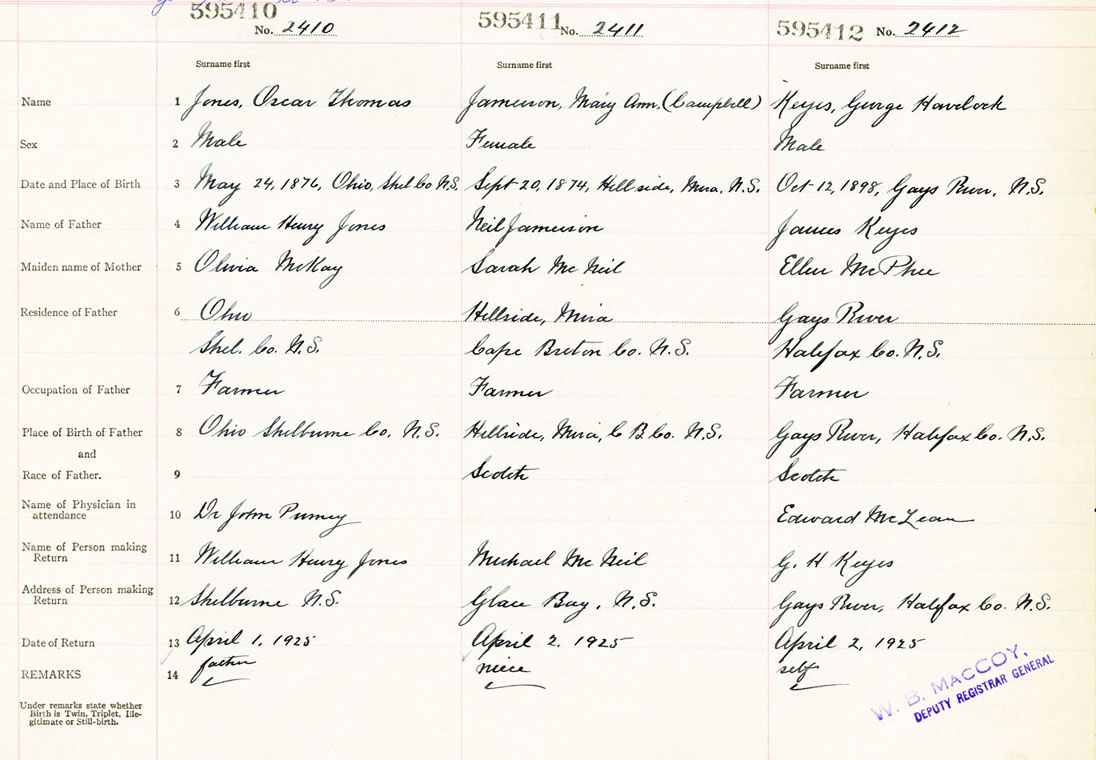 595410 No. 2410 595411 No. 2411 595412 No. 2412
Surname first Surname first Surname first
Name 1 Jones, Oscar Thomas Jamieson, Mary Ann, (Campbell) Keyes, George Havelock
Sex 2 Male Female Male
Date and Place of Birth 3 May 24, 1876, Ohio, Shel Co N.S. Sept 20, 1874, Hillside, Mira, N.S. Oct 12, 1898, Gays River, N.S.
Name of Father 4 William Henry Jones Neil Jamieson James Keyes
Maiden name of Mother 5 Olivia McKay Sarah Mc Neil Ellen McPhee
Residence of Father 6 Ohio Hillside, Mira Gays River
Shel. Co. N.S. Cape Breton Co. N.S. Halifax Co. N.S.
Occupation of Father 7 Farmer Farmer Farmer
Place of Birth of Father 8 Ohio Shelburne Co. N.S. Hillside, Mira, C B Co. N.S. Gays River, Halifax Co. N.S.
and
Race of Father. 9 Scotch Scotch
Name of Physician in
attendance 10 Dr John Purney Edward McLean
Name of Person making
Return 11 William Henry Jones Michael Mc Neil G. H Keyes
Address of Person making
Return 12 Shelburne N.S. Glace Bay, N.S. Gays River, Halifax Co. N.S.
Date of Return 13 April 1, 1925 April 2, 1925 April 2, 1925
REMARKS 14 father niece self
Under remarks state whether
Birth is Twin, Triplet, Ille-
gitimate or Still-birth.
W. B. MACCOY,
DEPUTY REGISTRAR GENERAL